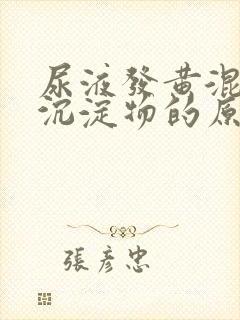 尿液發黃混
沉淀物的原
張彥忠